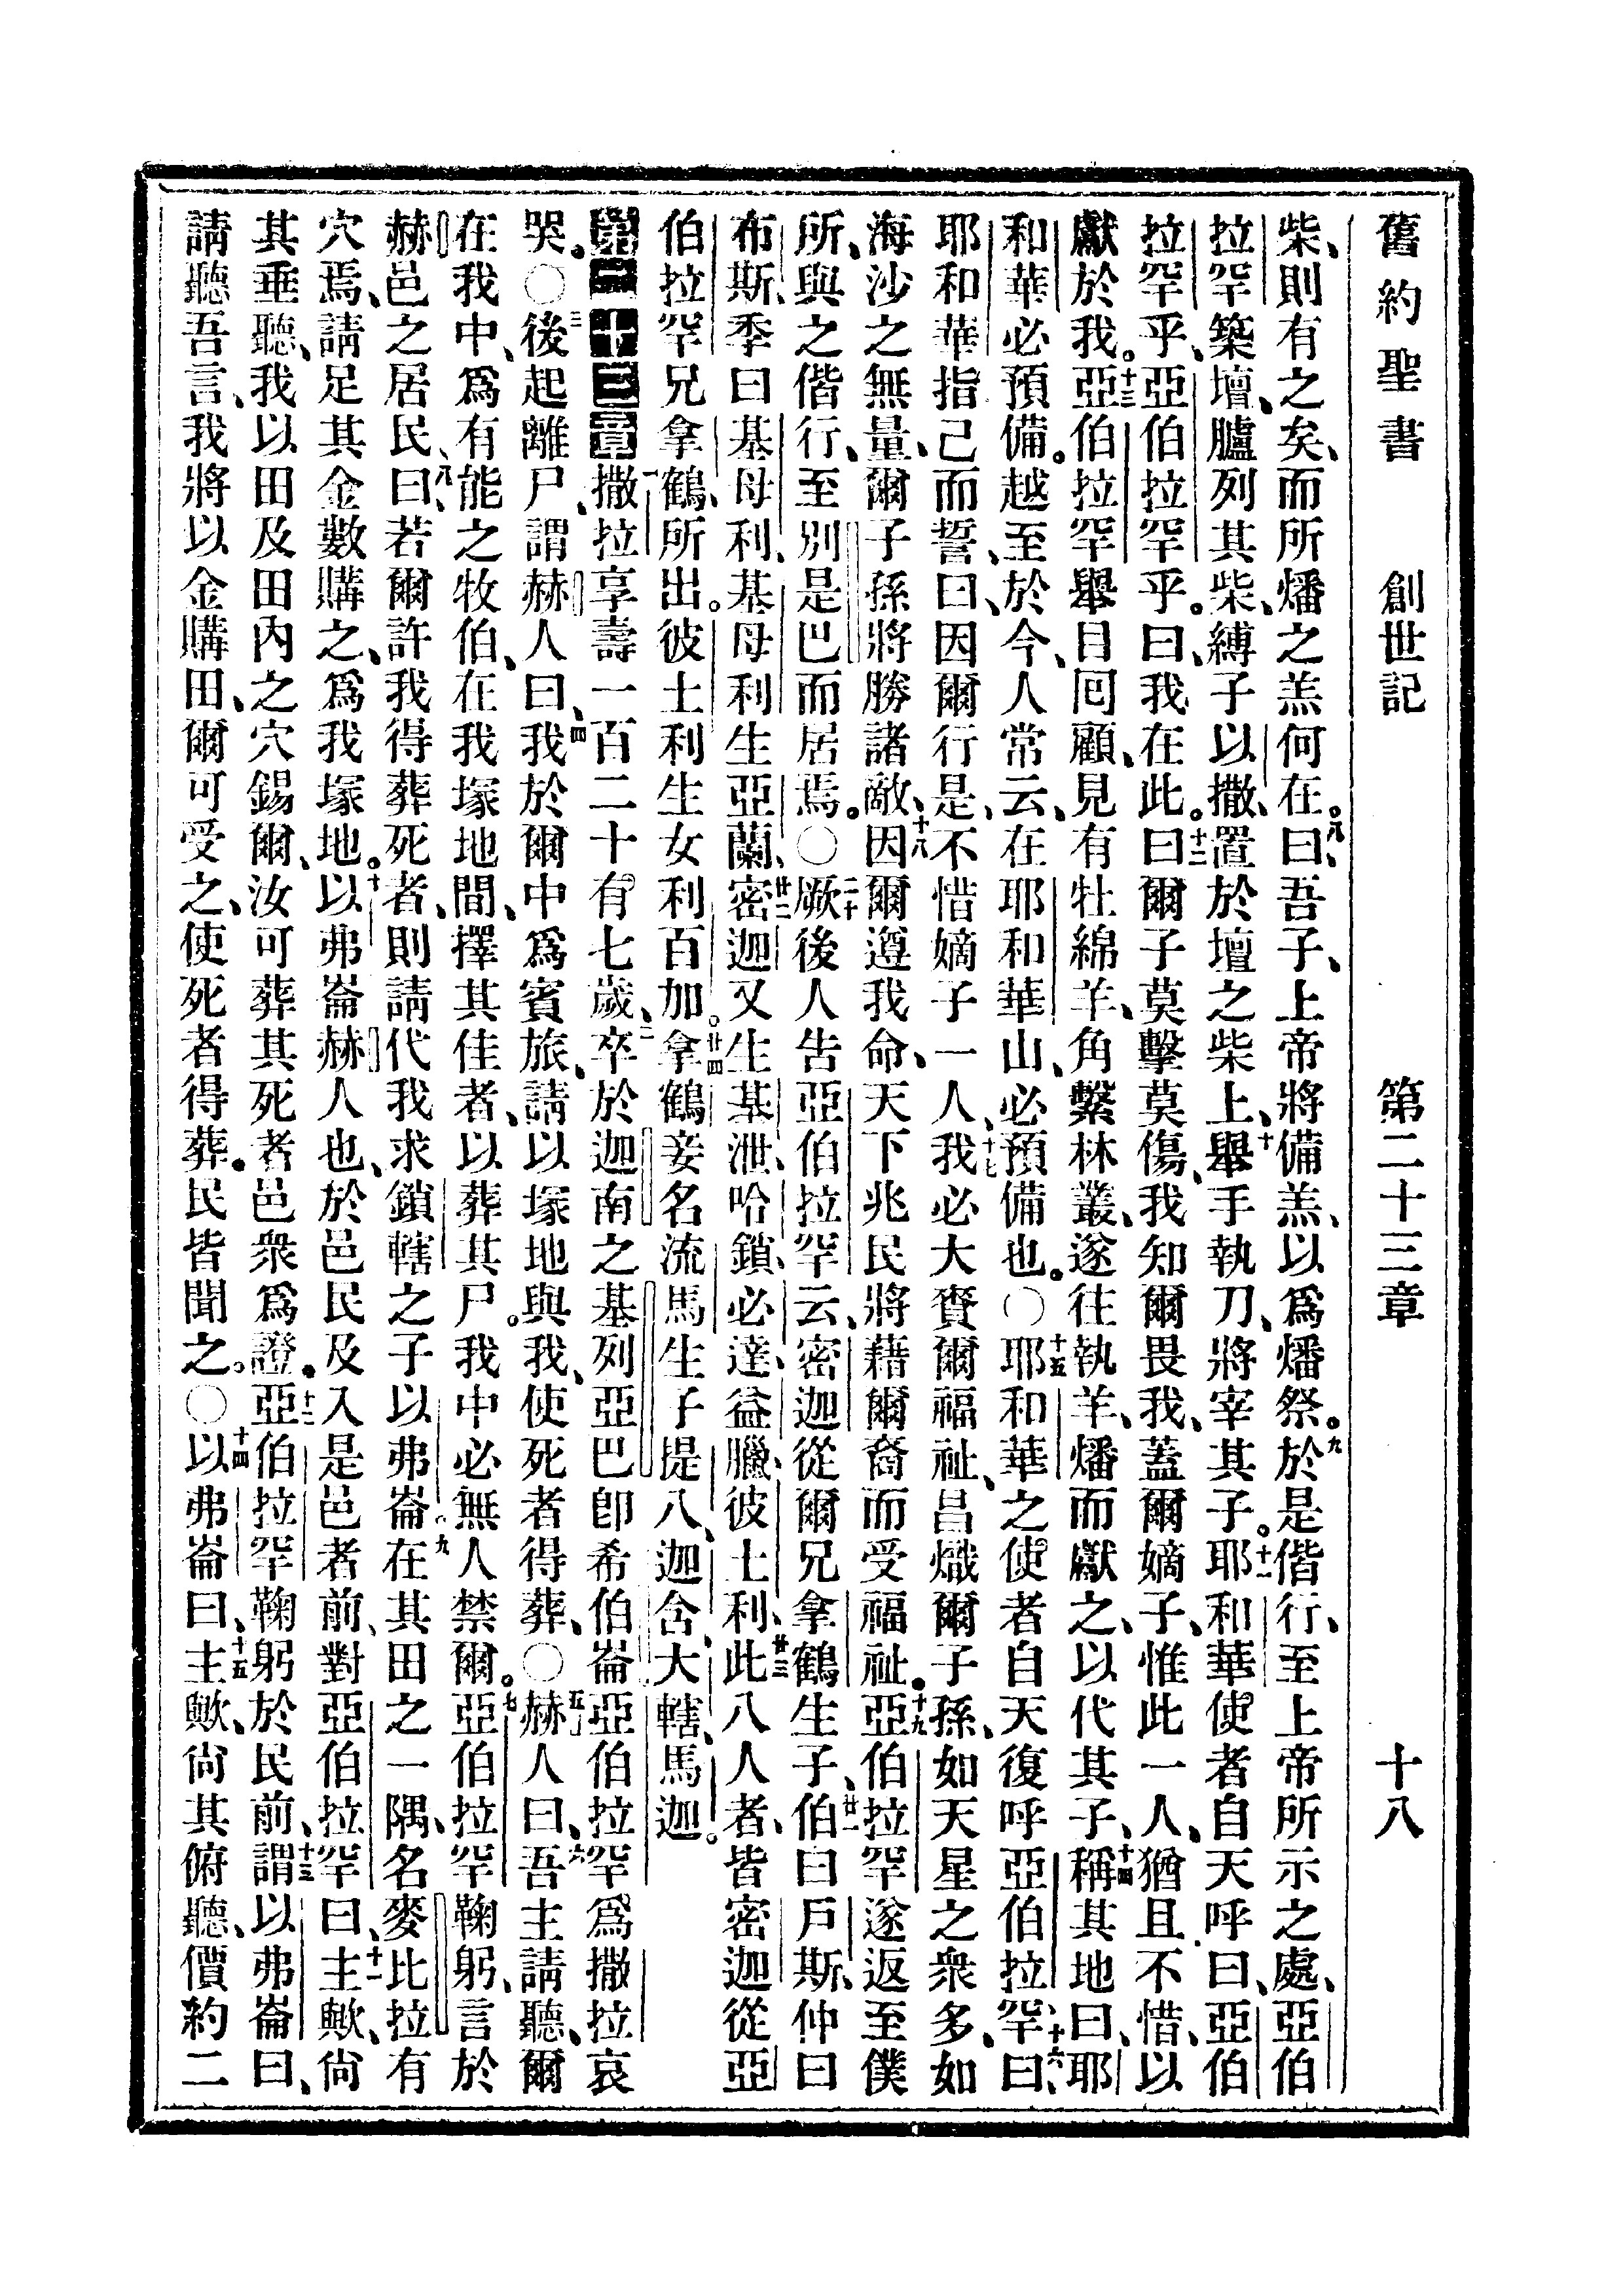 舊約聖書 創世記 第二十三章 十八
柴、則有之矣、而所燔之羔何在。八曰、吾子、上帝將備羔、以爲燔祭。九於是偕行、至上帝所示之處、亞伯
拉罕築壇、臚列其柴、縛子以撒、置於壇之柴上、十舉手執刀、將宰其子。十一耶和華使者自天呼曰、亞伯
拉罕乎、亞伯拉罕乎。曰、我在此。十二曰爾子莫擊莫傷、我知爾畏我、蓋爾嫡子、惟此一人、猶且不惜、以
獻於我。十三亞伯拉罕舉目囘顧、見有牡綿羊、角繫林叢、遂往執羊、燔而獻之、以代其子、十四稱其地曰、耶
和華必預備。越至於今、人常云、在耶和華山、必預備也。〇十五耶和華之使者自天復呼亞伯拉罕、十六曰、
耶和華指己而誓曰、因爾行是、不惜嫡子一人、十七我必大賚爾福祉、昌熾爾子孫、如天星之衆多、如
海沙之無量、爾子孫將勝諸敵、十八因爾遵我命、天下兆民將藉爾裔而受福祉。十九亞伯拉罕遂返至僕
所、與之偕行、至別是巴而居焉。〇二十厥後人告亞伯拉罕云、密迦從爾兄拿鶴生子、廿一伯曰戶斯、仲曰
布斯、季曰基母利、基母利生亞蘭、廿二密迦又生基泄、哈鎖、必達、益臘、彼土利、廿三此八人者、皆密迦從亞
伯拉罕兄拿鶴、所出。彼土利生女利百加。廿四拿鶴妾名流馬生子提八、迦含、大轄、馬迦。
第二十三章 一撒拉享壽一百二十有七歲、二卒於迦南之基列亞巴卽希伯崙、亞伯拉罕爲撒拉哀
哭。〇三後起離尸、謂赫人曰、四我於爾中爲賓旅、請以塚地與我、使死者得葬、〇五赫人曰、六吾主請聽、爾
在我中、爲有能之牧伯、在我塚地間、擇其佳者、以葬其尸。我中必無人禁爾。七亞伯拉罕鞠躬、言於
赫邑之居民、八曰、若爾許我得葬死者、則請代我求鎖轄之子以弗崙。九在其田之一隅、名麥比拉有
穴焉、請足其金數購之、爲我塚地。十以弗崙赫人也、於邑民及入是邑者前、對亞伯拉罕曰、十一主歟、尙
其垂聽、我以田及田內之穴錫爾、汝可葬其死者、邑衆爲證。十二亞伯拉罕鞠躬於民前、十三謂以弗崙曰、
請聽吾言、我將以金購田、爾可受之、使死者得葬。民皆聞之。〇十四以弗崙曰、十五主歟、尙其俯聽、價約二